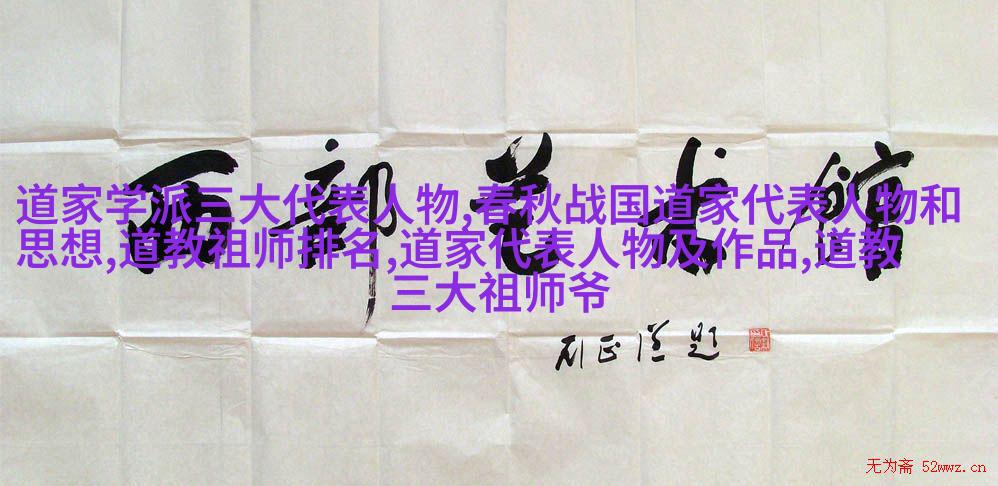 西部艺术馆
道家学派三大代表人物,春秋战国道家代表人物和
思想,道教祖师排名,道家代表人物及作品,道教
三大祖师爷
无为斋 52wwz.cn